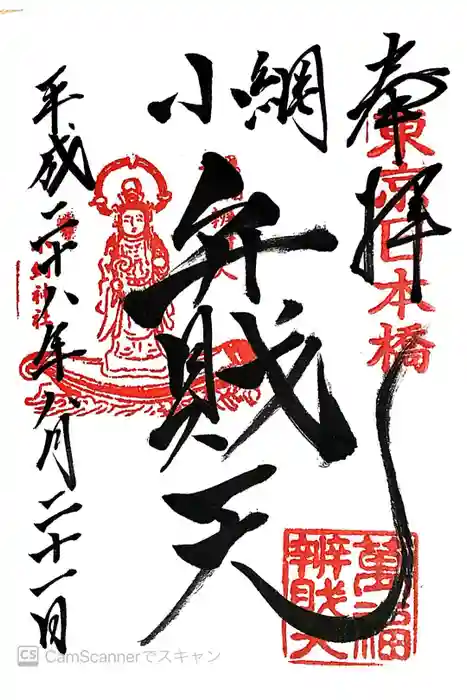 奉拝
東京日本橋
小網
弁財天
萬福
辨財天
平成二十八年八月二十一日
神社
CS CamScannerでスキャン